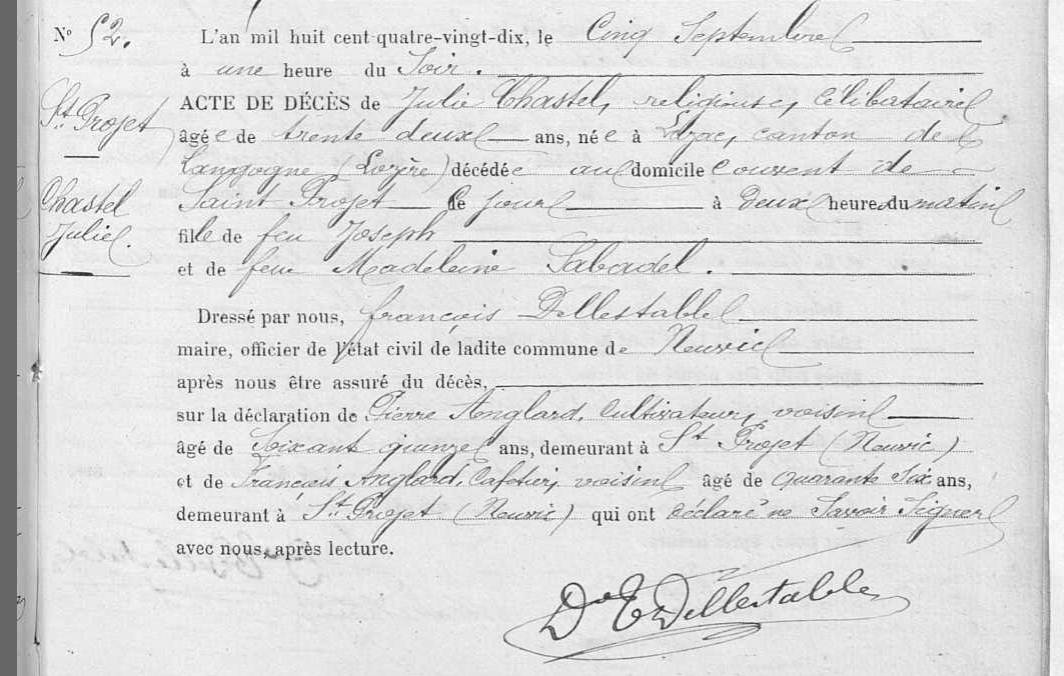 N° 52.
L'an mil huit cent quatre-vingt-dix, le Cinq Septembre
à une heure du Soir.
St Projet
ACTE DE DÉCÈS de Julie Chastel, religieuse, célibataire
âgée de trente deux ans, née à canton de
Langogne (Lozère) décédée au domicile Couvent de
Chastel
Julie.
Saint Projet Ce jour à Deux heures du matin
fille de feu Joseph
et de feue Madeleine Sabadel.
Dressé par nous, François Dellestable
maire, officier de l'état civil de ladite commune de Neuvic
après nous être assuré du décès,
sur la déclaration de Pierre Anglard, Cultivateur, voisin
âgé de Soixante quinze ans, demeurant à St Projet (Neuvic)
et de François Anglard, Cafetier, voisin âgé de Quarante Six ans,
demeurant à St Projet (Neuvic) qui ont déclaré ne Savoir Signer
avec nous, après lecture.
Dr Dellestable